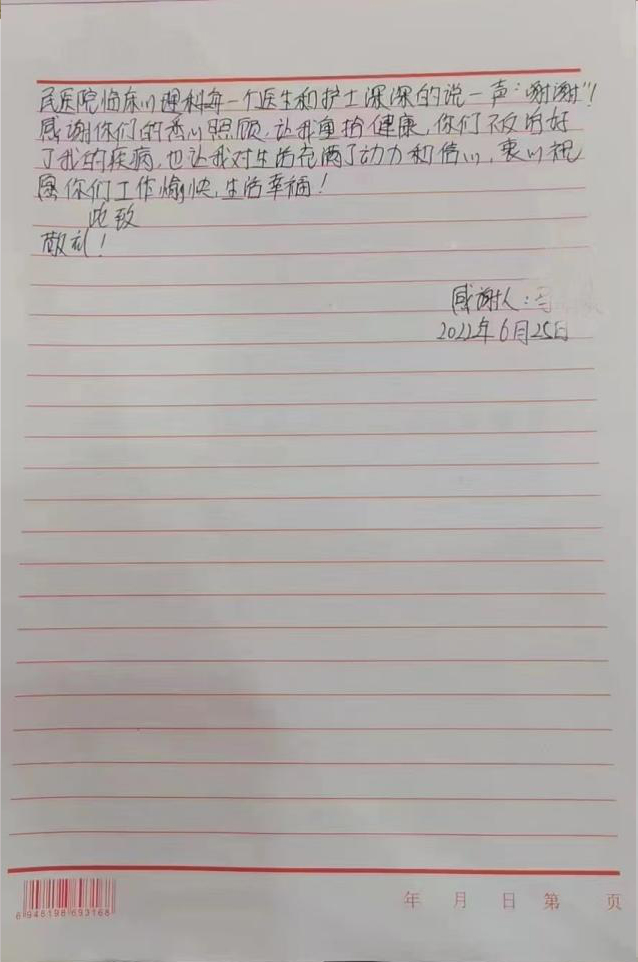 民医院临床心理科每一个医生和护士深深的说一声:“谢谢”!
感谢你们的悉心照顾,让我重拾健康,你们不仅治好
了我的疾病,也让我对生活充满了动力和信心,衷心祝
愿你们工作愉快,生活幸福!
此致
敬礼!
感谢人:
2022年6月25日
6946198693168
年 月 日 第 页